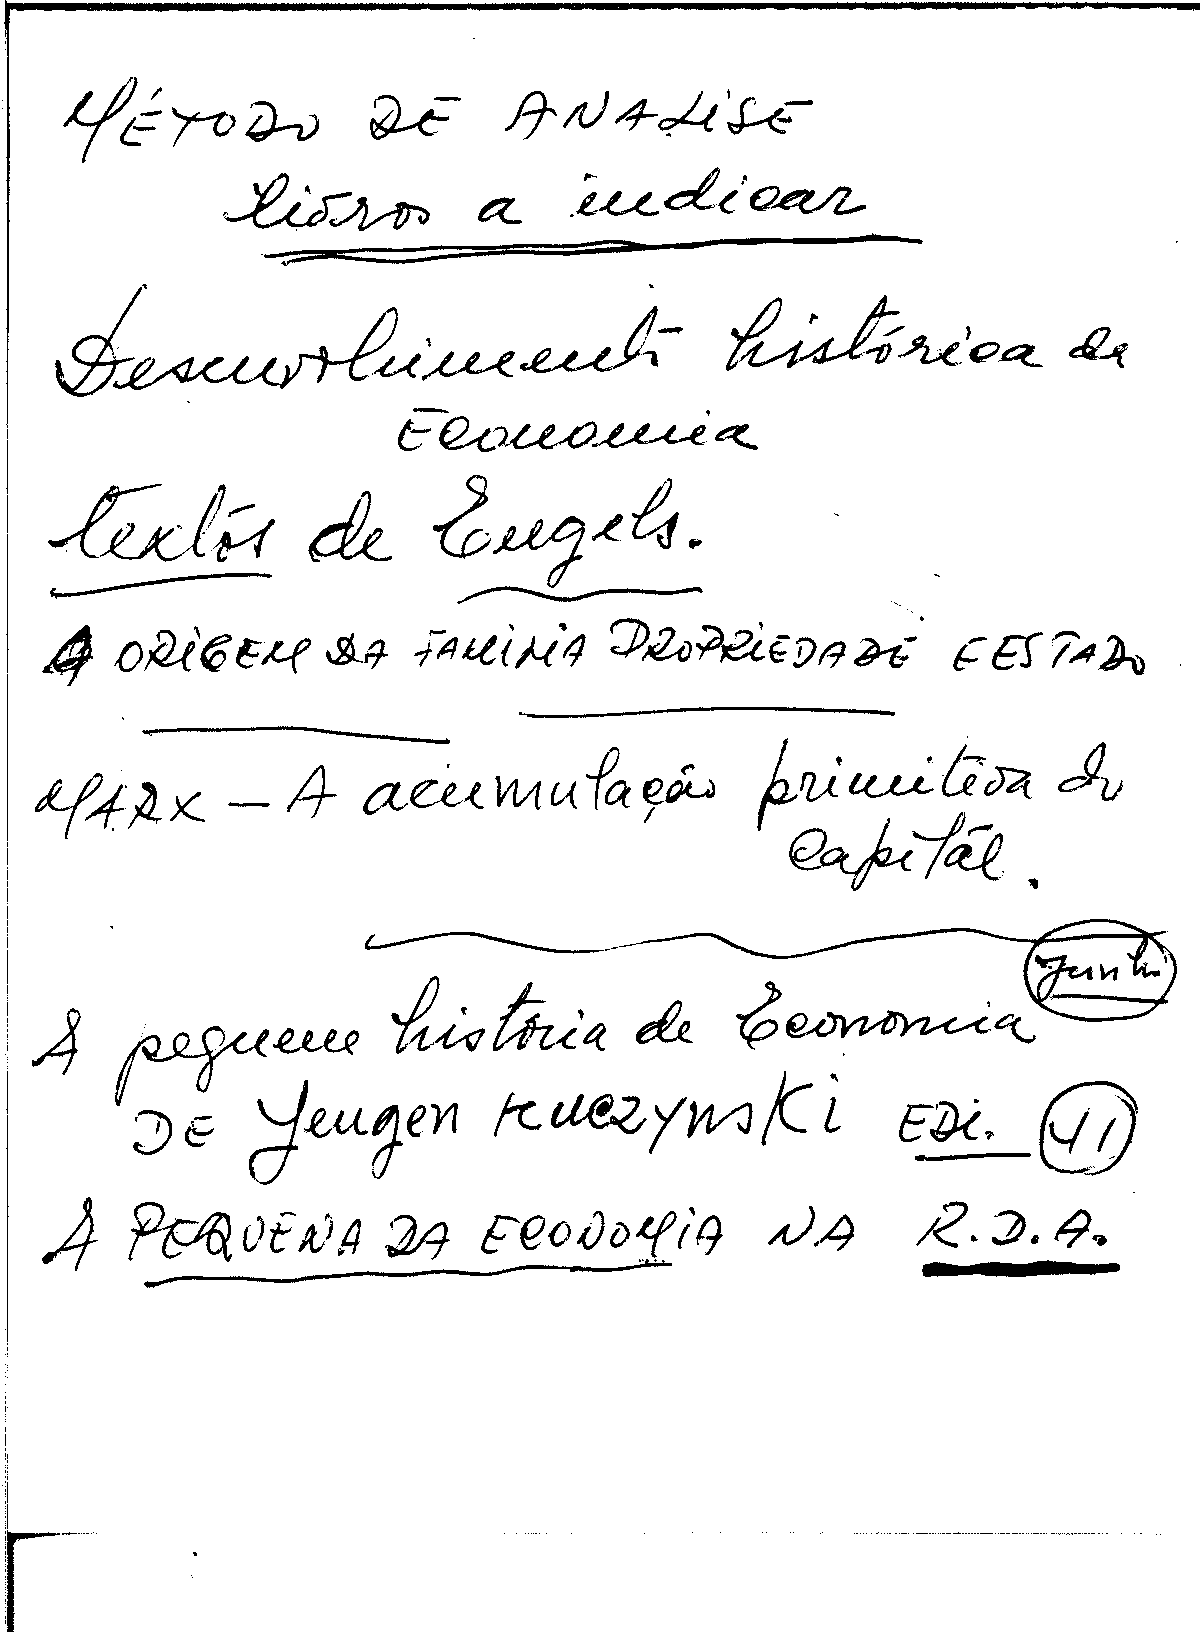 MÉTODO DE ANALISE
livros a indicar
Desenvolvimento histórica da
Economia
textos de Engels.
A ORIGEM DA FAMILIA PROPRIEDADE E ESTADO
MARX - A acumulação primitiva do
Capital.
A pequena história de Economia
DE Jeugen Kuczynski EDI.
A PEQUENA DA ECONOMIA NA R.D.A.